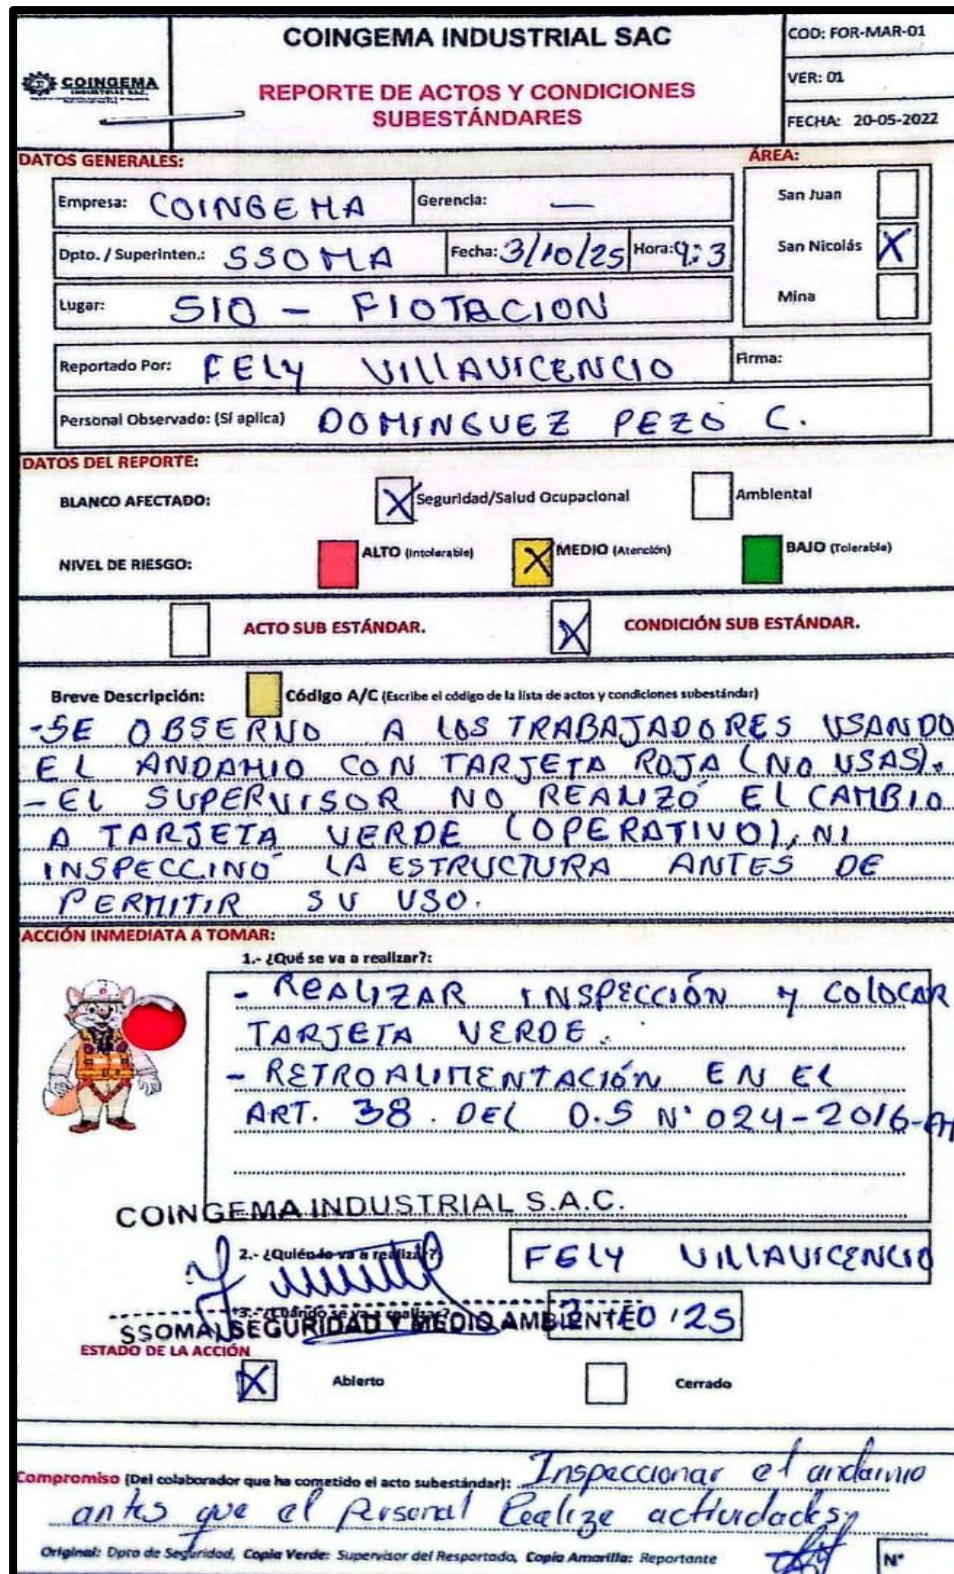 COINGEMA INDUSTRIAL SAC
COD: FOR-MAR-01
COINGEMA
INDUSTRIAL SAC.
VER: 01
REPORTE DE ACTOS Y CONDICIONES
SUBESTÁNDARES
FECHA: 20-05-2022
DATOS GENERALES:
ÁREA:
Empresa: COINGEMA Gerencia: —
San Juan
Dpto. / Superinten.: SSOMA Fecha: 3/10/25 Hora: 9:3
San Nicolás X
Lugar: S10 - FIOTACION
Mina
Reportado Por: FELY VILLAVICENCIO Firma:
Personal Observado: (Sí aplica) DOMINGUEZ PEZO C.
DATOS DEL REPORTE:
BLANCO AFECTADO: X Seguridad/Salud Ocupacional Ambiental
NIVEL DE RIESGO: ALTO (Intolerable) X MEDIO (Atención) BAJO (Tolerable)
ACTO SUB ESTÁNDAR. X CONDICIÓN SUB ESTÁNDAR.
Breve Descripción: Código A/C (Escribe el código de la lista de actos y condiciones subestándar)
-SE OBSERVO A LOS TRABAJADORES USANDO
EL ANDAMIO CON TARJETA ROJA (NO USAS).
- EL SUPERVISOR NO REALIZÓ EL CAMBIO
A TARJETA VERDE (OPERATIVO), NI
INSPECCINÓ LA ESTRUCTURA ANTES DE
PERMITIR SU USO.
ACCIÓN INMEDIATA A TOMAR:
1.- ¿Qué se va a realizar?:
- REALIZAR INSPECCIÓN Y COLOCAR
TARJETA VERDE.
- RETROALIMENTACIÓN EN EL
ART. 38. DEL D.S N° 024-2016-EM
COINGEMA INDUSTRIAL S.A.C.
2.- ¿Quién lo va a realizar?: FELY VILLAVICENCIO
3.- ¿Cuándo se va a realizar?
SSOMA SEGURIDAD Y MEDIO AMBIENTE
ESTADO DE LA ACCIÓN
X Abierto Cerrado
Compromiso (Del colaborador que ha cometido el acto subestándar): Inspeccionar el andamio
antes que el personal Realize actividades
Original: Dpto de Seguridad, Copia Verde: Supervisor del Resportado, Copia Amarilla: Reportante N°